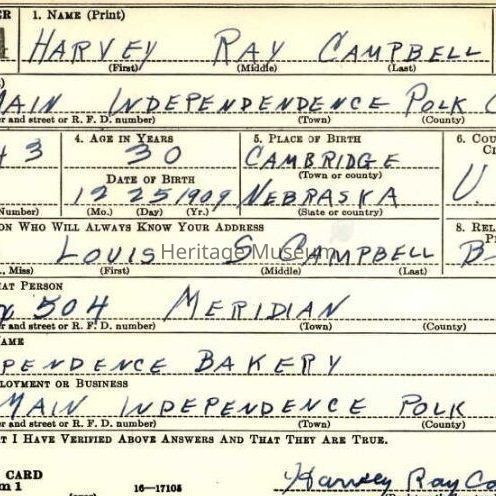 ER 1. NAME (Print)
HARVEY RAY CAMPBELL
(First) (Middle) (Last)
MAIN INDEPENDENDENCE POLK
er and street or R. F. D. number) (Town) (County)
4. AGE IN YEARS 5. PLACE OF BIRTH 6. COU
43 30 CAMBRIDGE
(Town or county)
DATE OF BIRTH
12 25 1909 NEBRASKA U.
Number) (Mo.) (Day) (Yr.) (State or country)
ON WHO WILL ALWAYS KNOW YOUR ADDRESS 8. REL
LOUIS S CAMPBELL B
Heritage Museum
., Miss) (First) (Middle) (Last)
HAT PERSON
504 MERIDIAN
er and street or R. F. D. number) (Town) (County)
AME
PENDENCE BAKERY
PLOYMENT OR BUSINESS
MAIN INDEPENDENCE POLK
er and street or R. F. D. number) (Town) (County)
T I HAVE VERIFIED ABOVE ANSWERS AND THAT THEY ARE TRUE.
CARD
m 1 16—17105
Harvey Ray Ca